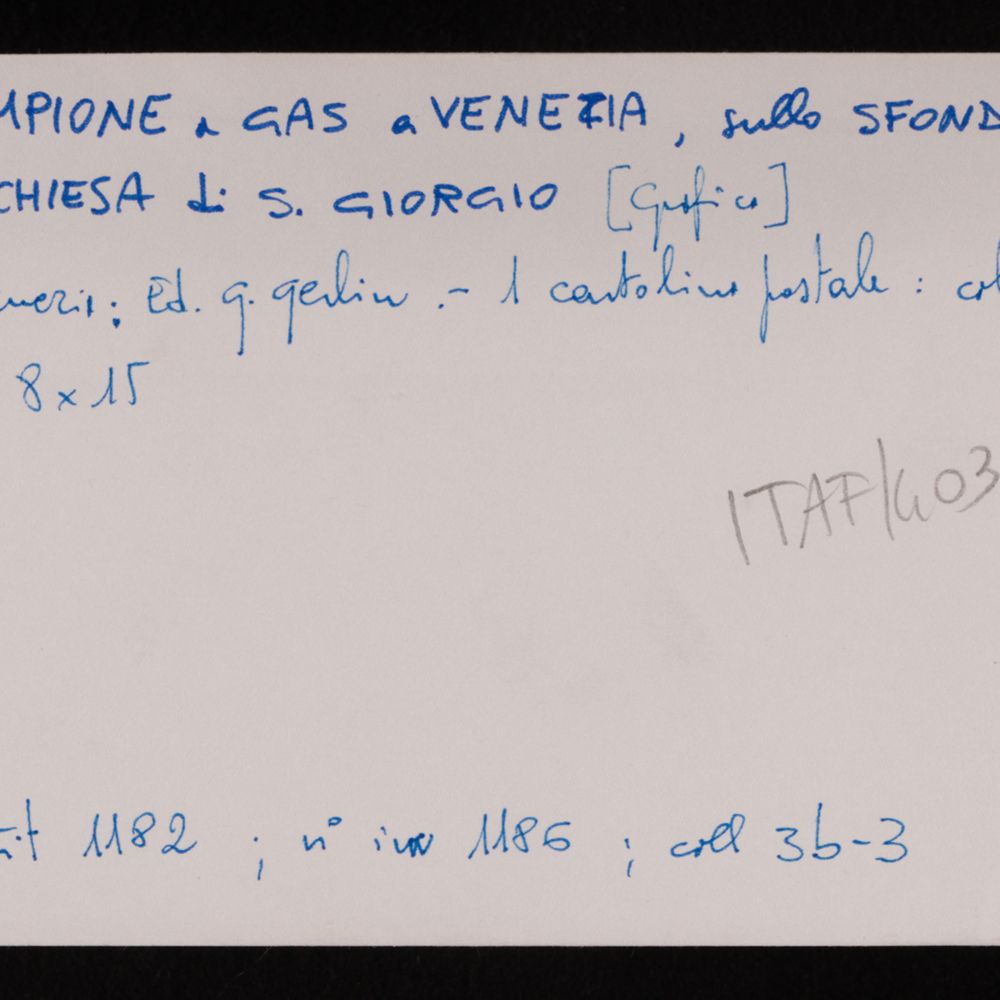 MPIONE a GAS a VENEZIA, sullo SFOND
CHIESA di S. GIORGIO [Grafica]
enezia; Ed. G. Gerlin .- 1 cartolina postale : col
8 x 15
ITAF/G03
it 1182 ; n° inv 1186 ; coll 3b-3